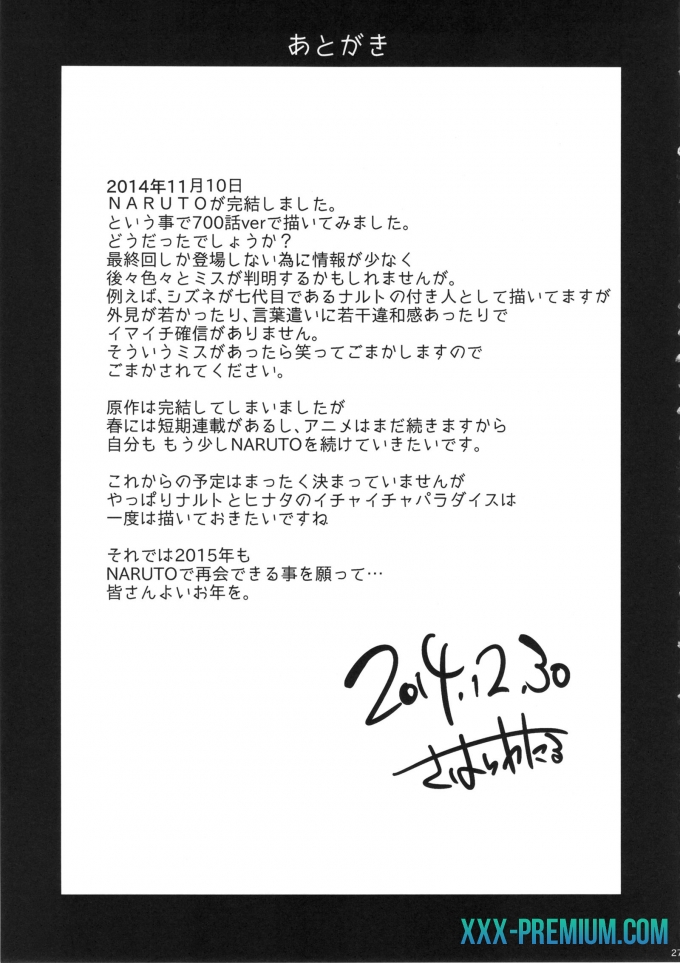 あとがき
2014年11月10日
ＮＡＲＵＴＯが完結しました。
という事で700話verで描いてみました。
どうだったでしょうか？
最終回しか登場しない為に情報が少なく
後々色々とミスが判明するかもしれませんが。
例えば、シズネが七代目であるナルトの付き人として描いてますが
外見が若かったり、言葉遣いに若干違和感あったりで
イマイチ確信がありません。
そういうミスがあったら笑ってごまかしますので
ごまかされてください。
原作は完結してしまいましたが
春には短期連載があるし、アニメはまだ続きますから
自分も もう少しNARUTOを続けていきたいです。
これからの予定はまったく決まっていませんが
やっぱりナルトとヒナタのイチャイチャパラダイスは
一度は描いておきたいですね
それでは2015年も
NARUTOで再会できる事を願って…
皆さんよいお年を。
2014.12.30
さはらわたる
XXX-PREMIUM.COM
27